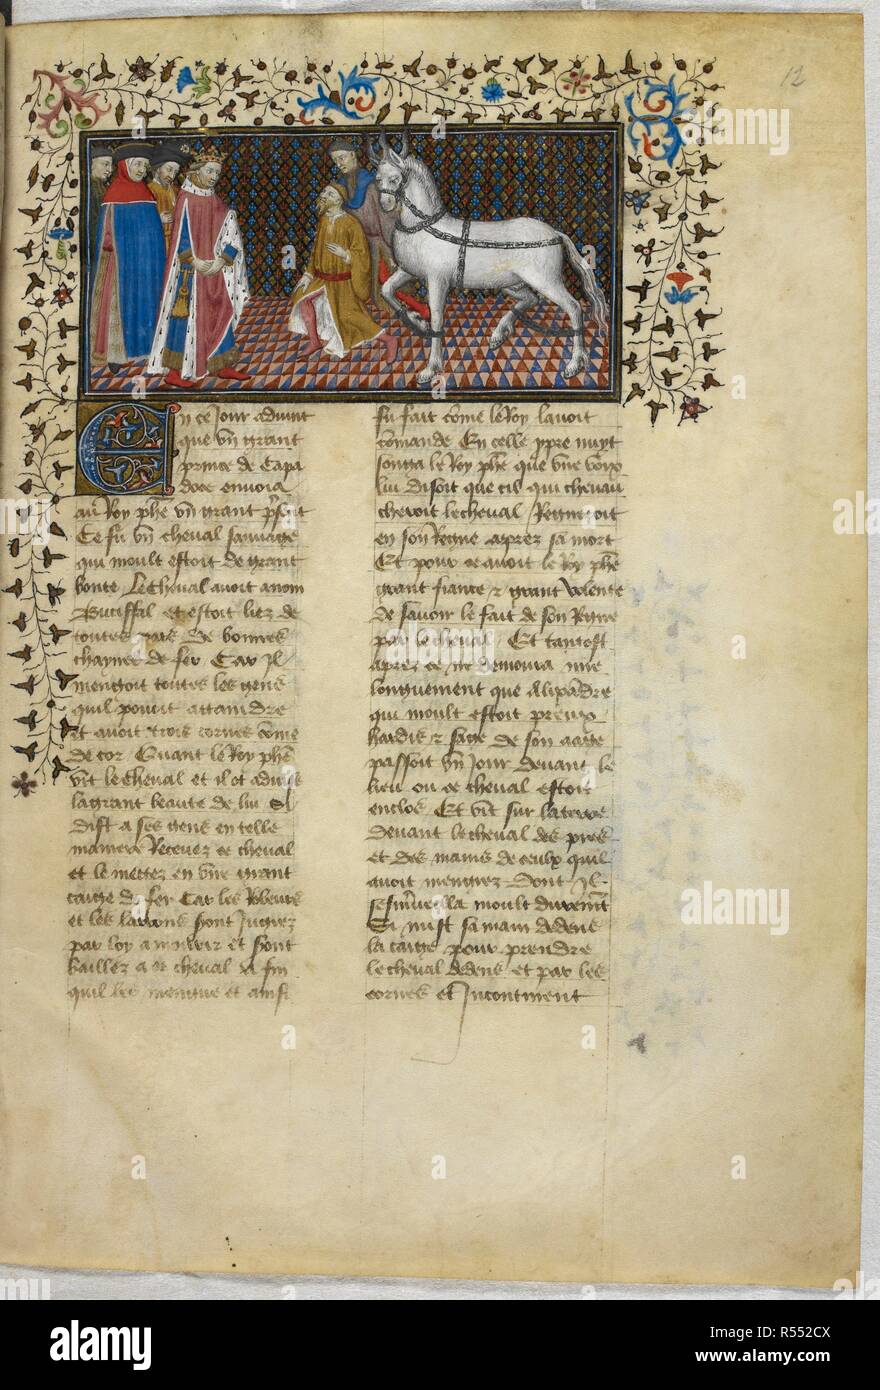 12
En ce jour advint
que un grant
prince de Capa
doce envoia
au Roy phe un grant prsent
Ce fu un cheval sauvage
qui moult estoit de grant
bonte Le cheval avoit a nom
Buciffal et estoit liez de
toutes pars de bonnes
chaynes de fer Car Il
mengoit toutes les gens
quil povoit attaindre
et avoit trois cornes come
de cor Quant le Roy phe
vit le cheval et il ot advise
la grant beaute de lui Si
dist a ses gens en telle
maniere Recevez ce cheval
et le mettez en une grant
caige de fer Car les Robeurs
et les larrons sont Jugiez
par loy a morir et sont
bailliez a ce cheval a fin
quil les mengue et ainsi
fu fait come le Roy lavoit
comande En celle ppre nuyt
songa le Roy phe que une voix
lui disoit que cil qui chevau
cheroit le cheval Regneroit
en son Regne apres sa mort
Et pour ce avoit le Roy phe
grant fiance & grant volente
de savoir le fait de son Regne
par le cheval Et tantost
apres ce ne demoura mie
longuement que Alixandre
qui moult estoit preux
hardis & sage de son aage
passoit un jour devant le
lieu ou ce cheval estoit
enclos Et vit sur la terre
devant le cheval des pies
et des mains de ceulx quil
avoit mengiez Dont Il
se mervella moult durement
Si mist sa main dedens
la caige pour prendre
le cheval dedens et par les
cornes et Incontinent
alamy
Image ID: R552CX
www.alamy.com